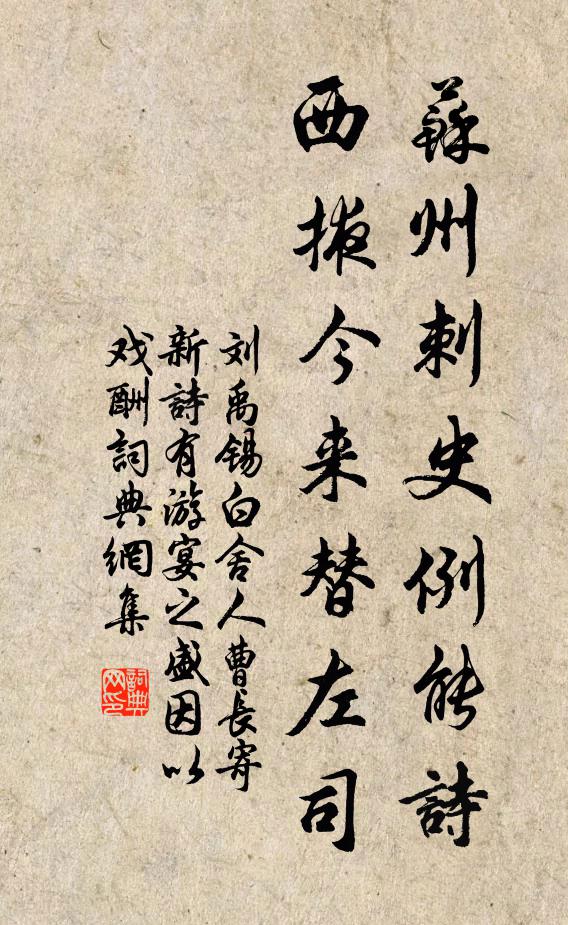 蘇州刺史例能詩
西掖今来替左司
刘禹锡白舍人曹長寄
新詩有游宴之盛因以
戏酬詞典網集
詞典
网印